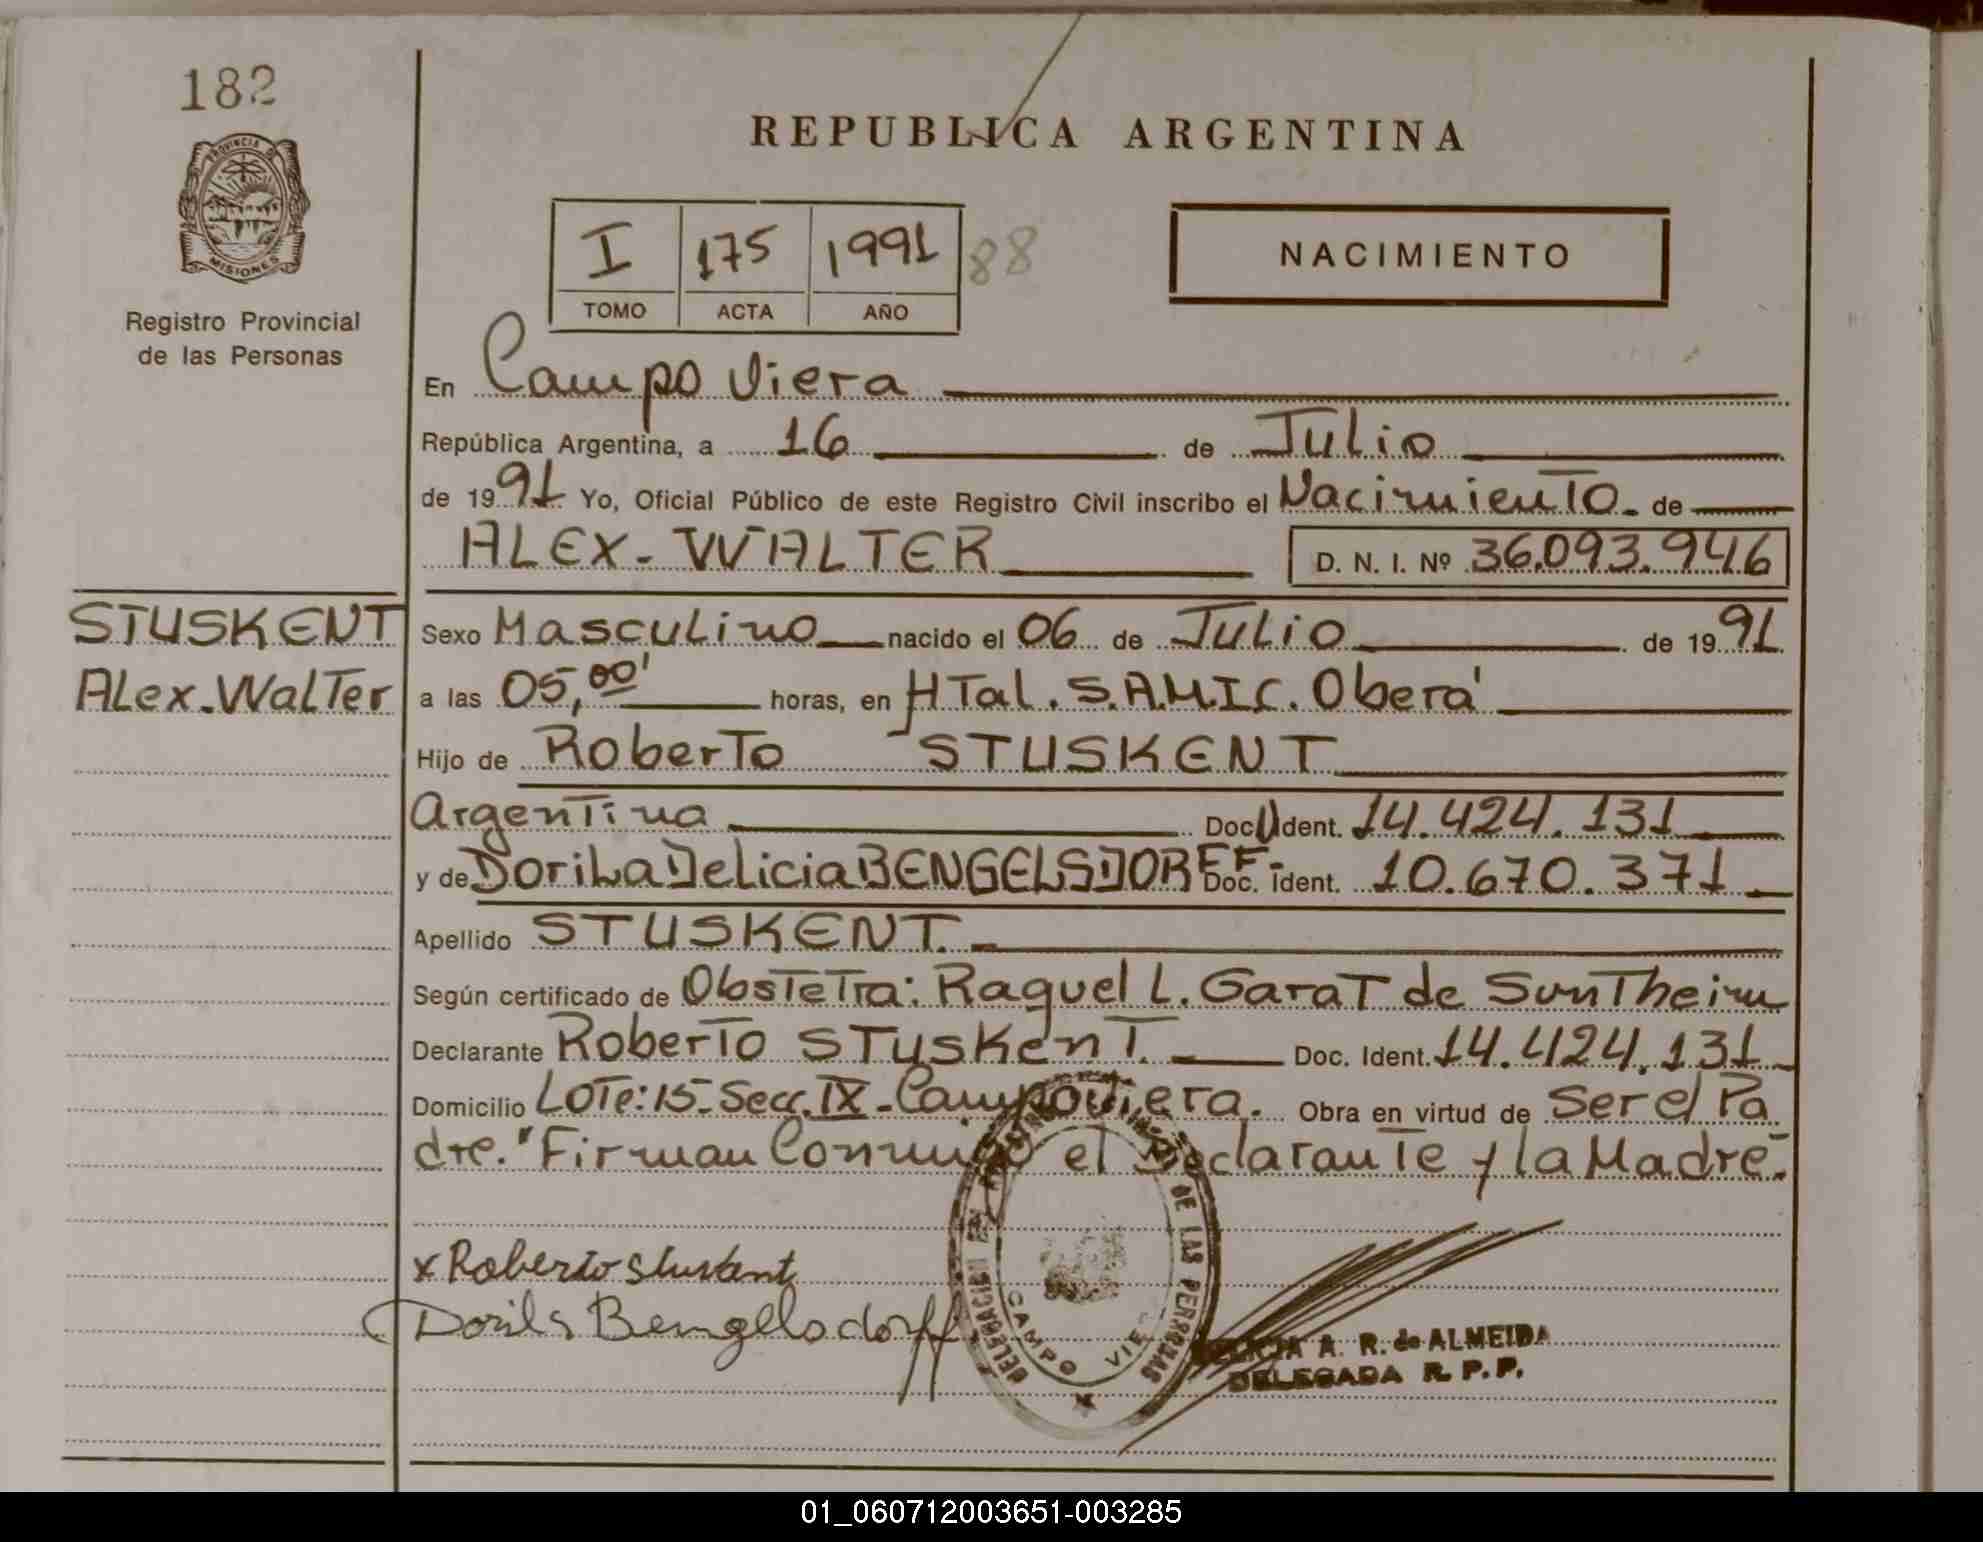 182
PROVINCIA DE
MISIONES
Registro Provincial
de las Personas
REPUBLICA ARGENTINA
I 175 1991 88
TOMO ACTA AÑO
NACIMIENTO
En Campo Viera
República Argentina, a 16 de Julio
de 1991 Yo, Oficial Público de este Registro Civil inscribo el Nacimiento de
ALEX-WALTER D. N. I. Nº 36.093.946
STUSKENT
Alex-Walter
Sexo Masculino nacido el 06 de Julio de 1991
a las 05,00' horas, en HTal. S.A.M.I.C. Oberá
Hijo de Roberto STUSKENT
Argentina Doc. Ident. 14.424.131
y de Dorila Delicia BENGELSDORFF- Doc. Ident. 10.670.371
Apellido STUSKENT.
Según certificado de Obstetra: Raquel L. Garat de Suntheim
Declarante Roberto STUSKENT. Doc. Ident. 14.424.131
Domicilio Lote: 15- Secc. IX - Campo Viera. Obra en virtud de Ser el Pa
dre. "Firman Conmigo el Declarante y la Madre.
x Roberto Stuskent
Dorila Bengelsdorff
DELEGACION DE LAS PERSONAS
CAMPO VIE
A. R. de ALMEIDA
DELEGADA R. P. P.
01_060712003651-003285